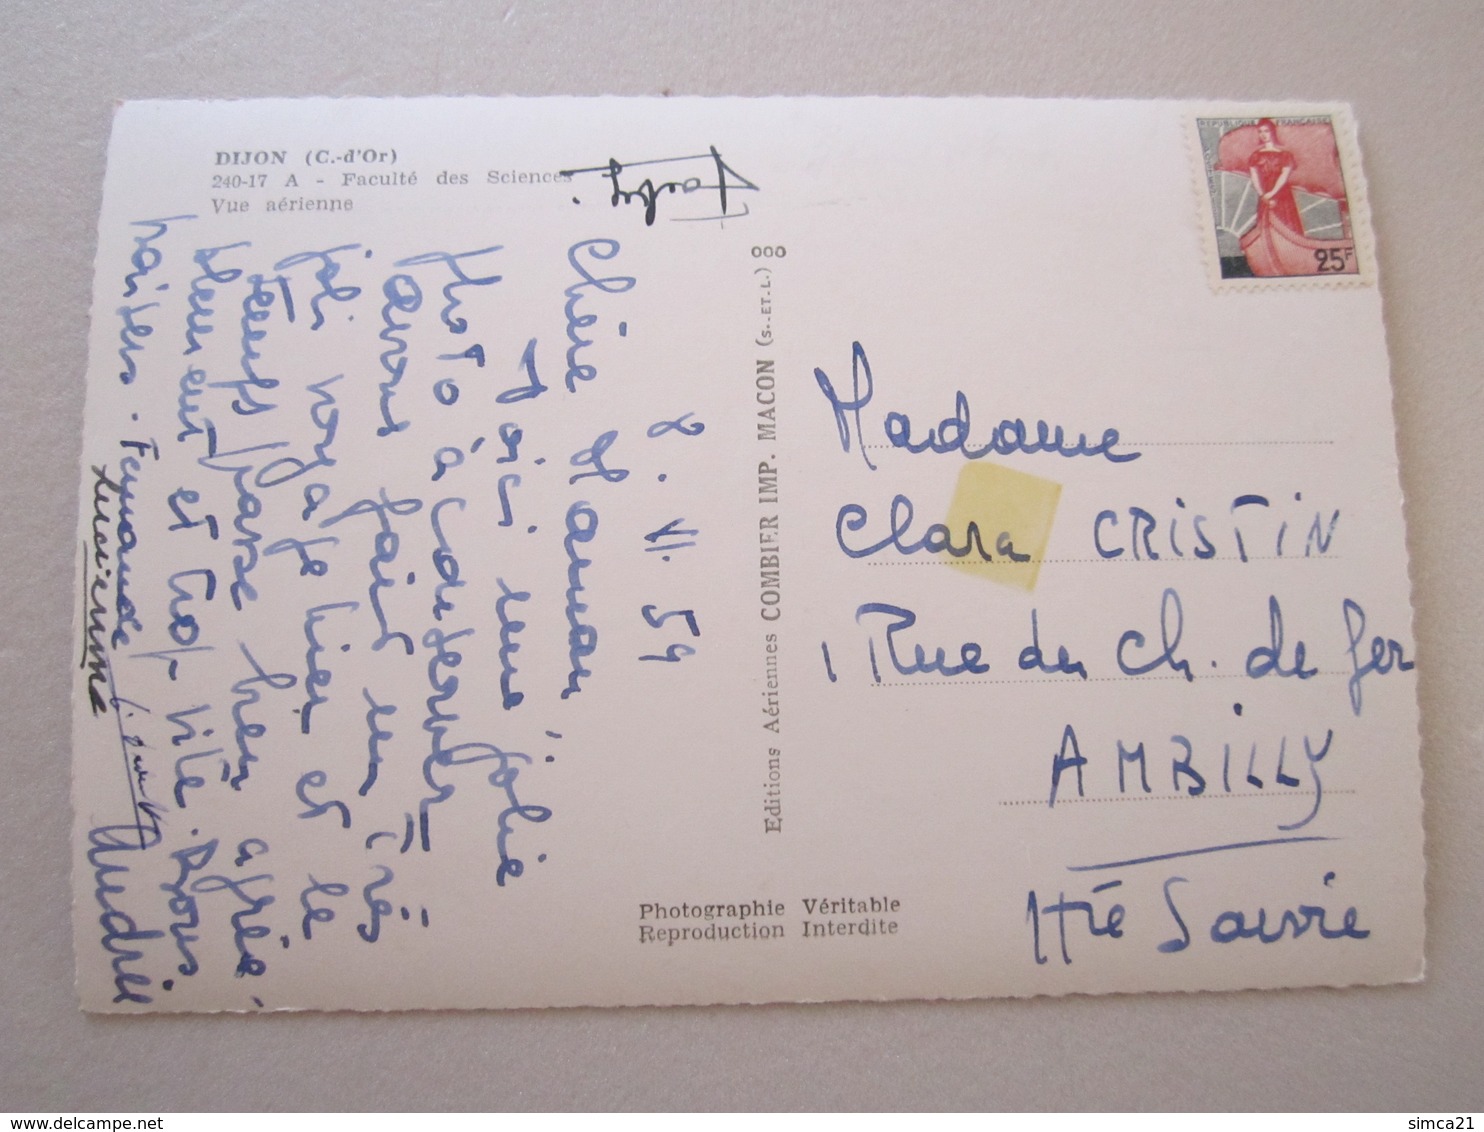 DIJON (C.-d'Or)
240-17 A - Faculté des Sciences
Vue aérienne
8. VI. 59
Chère Maman,
Voici une jolie
photo à conserver
avons fait un très
joli voyage hier et le
temps passe bien agréa-
blement et trop vite. Bons
baisers. Fernande
Lucienne
Andrée
Editions Aériennes COMBIER IMP. MACON (S.-ET-L.)
Photographie Véritable
Reproduction Interdite
REPUBLIQUE FRANÇAISE
25F
Madame
Clara CRISTIN
1 Rue du Ch. de fer
AMBILLY
Hte Savoie
delcampe.net
simca21